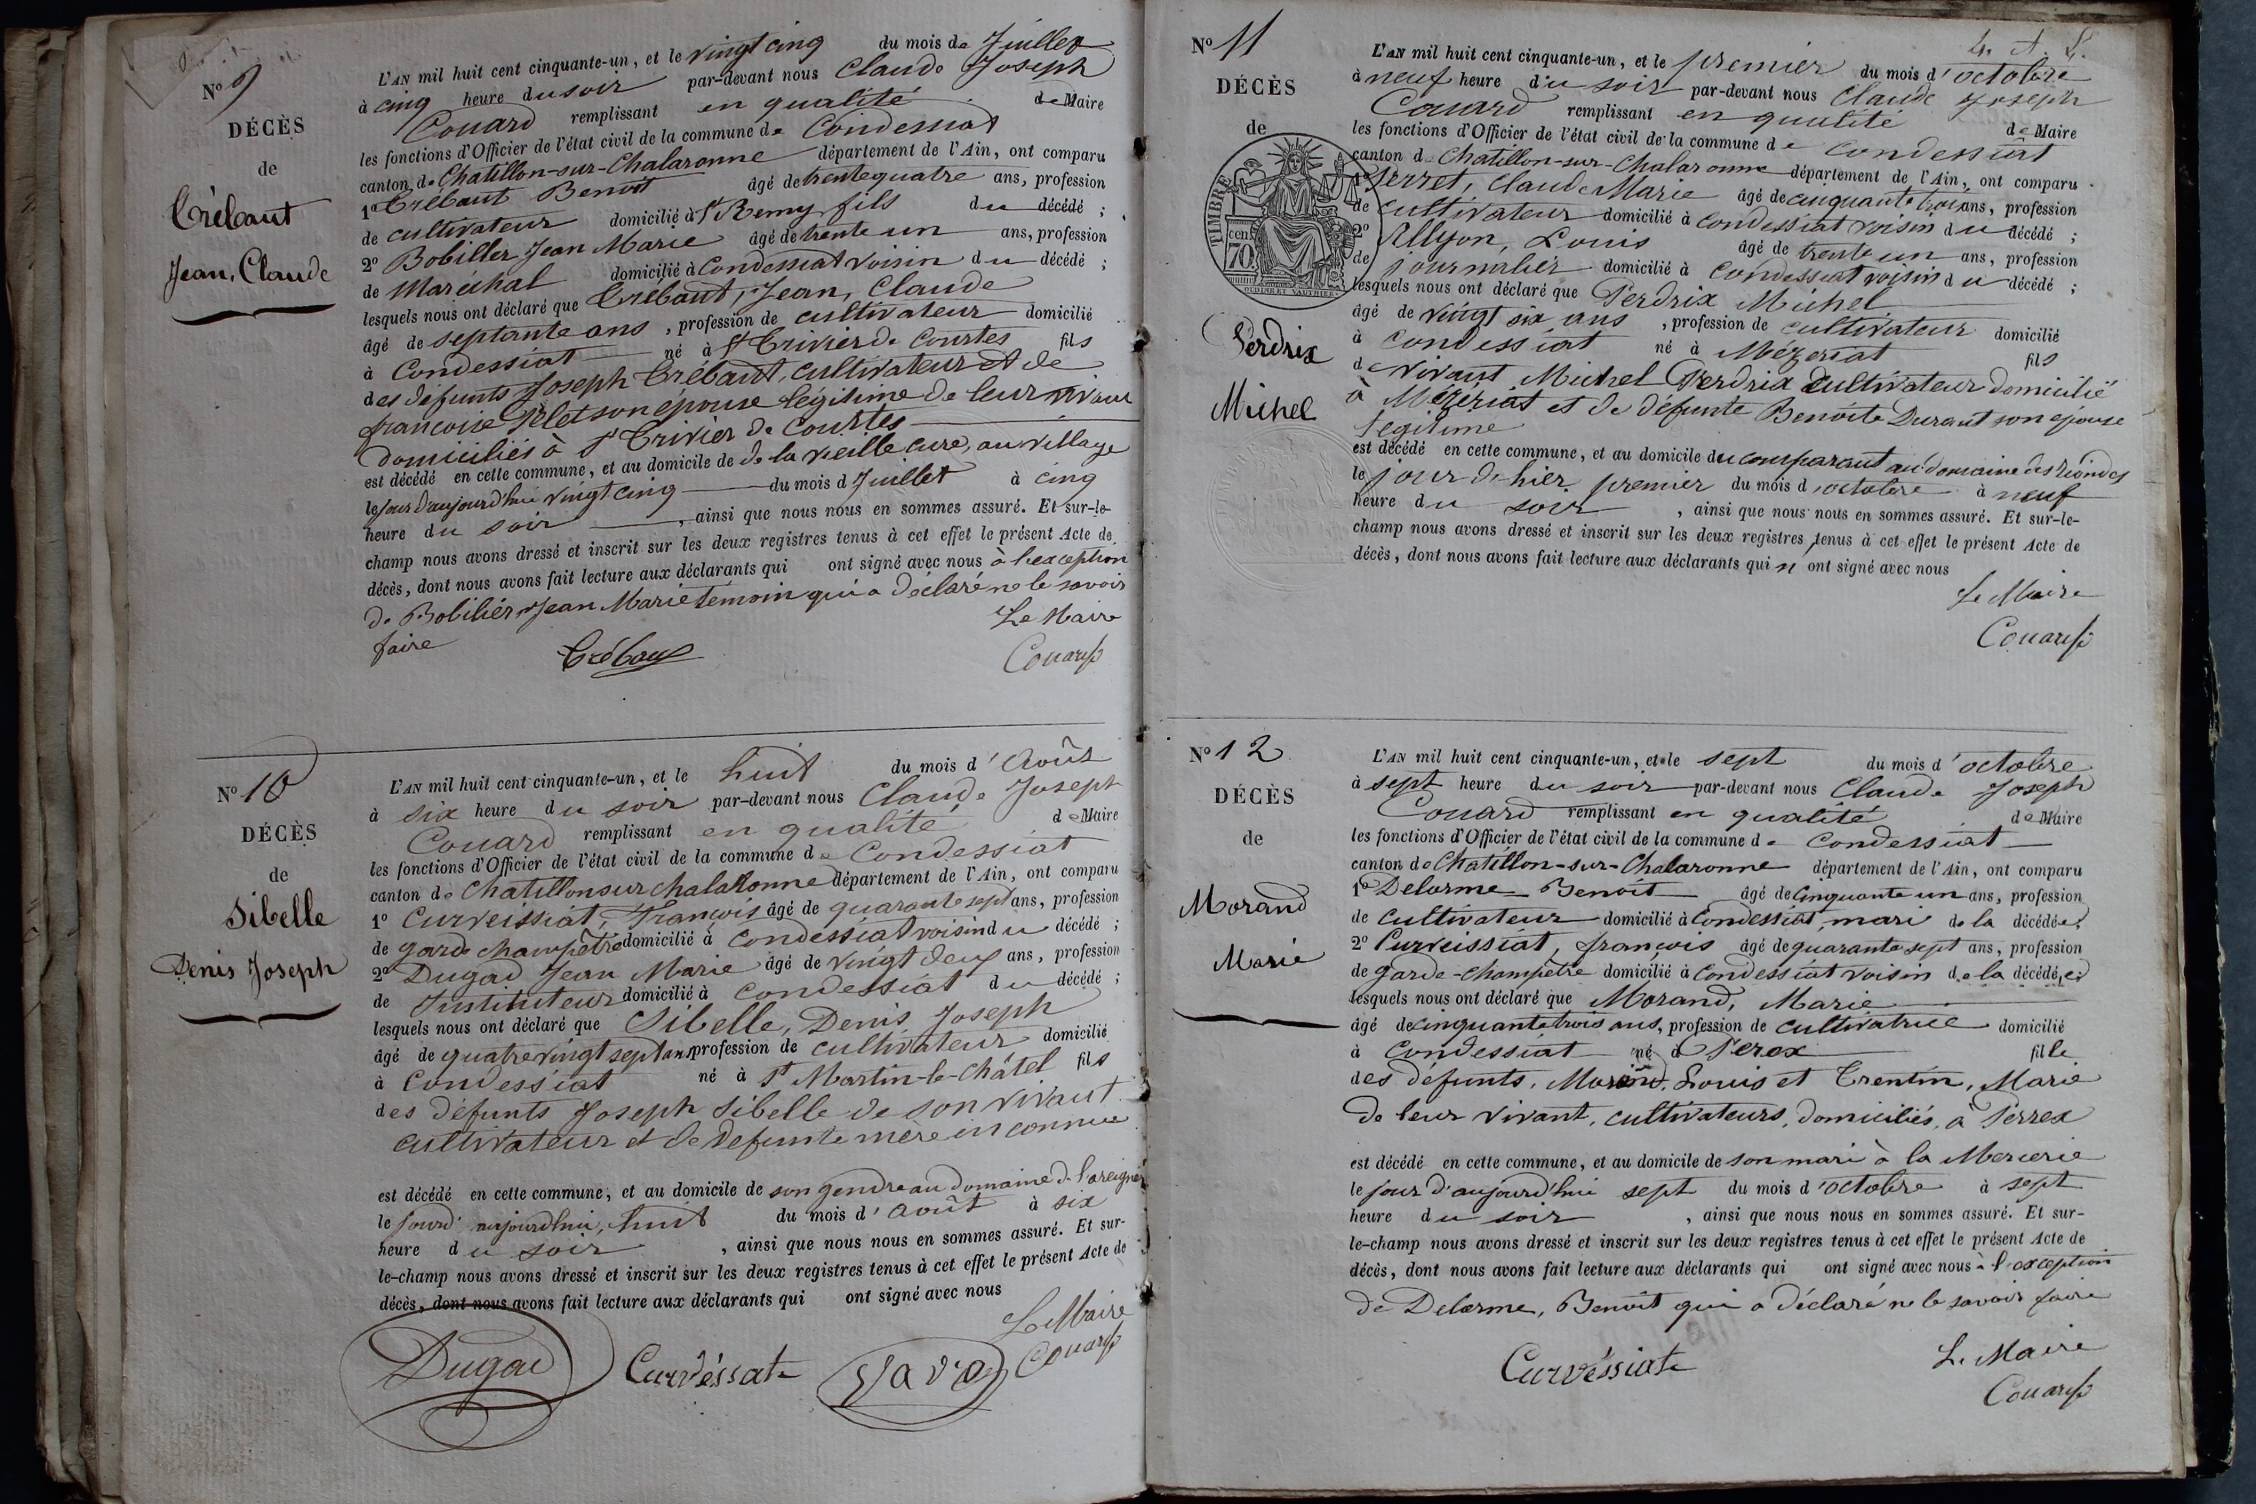 N° 9
DÉCÈS
de
Trébaut
Jean, Claude
L'AN mil huit cent cinquante-un, et le vingt cinq du mois de Juillet
à cinq heure du soir par-devant nous Claude Joseph
Couard remplissant en qualité de Maire
les fonctions d'Officier de l'état civil de la commune de Condessiat
canton de Chatillon-sur-Chalaronne département de l'Ain, ont comparu
1° Trébaut Benoit âgé de trente quatre ans, profession
de cultivateur domicilié à St Remy, fils du décédé ;
2° Bobiller Jean Marie âgé de trente un ans, profession
de Maréchal domicilié à Condessiat voisin du décédé ;
lesquels nous ont déclaré que Trébaut, Jean, Claude
âgé de septante ans, profession de cultivateur domicilié
à Condessiat né à St Trivier de Courtes fils
des défunts Joseph Trébaut, cultivateur et de
françoise Pelet son épouse légitime de leur vivant
domiciliés à St Trivier de Courtes
est décédé en cette commune, et au domicile de de la vieille cure, au village
le jour d'aujourd'hui vingt cinq du mois d Juillet à cinq
heure du soir, ainsi que nous nous en sommes assuré. Et sur-le-
champ nous avons dressé et inscrit sur les deux registres tenus à cet effet le présent Acte de
décès, dont nous avons fait lecture aux déclarants qui ont signé avec nous à l'exception
de Bobilier Jean Marie témoin qui a déclaré ne le savoir
faire
Le Maire
Trébaut
Couard
N° 10
DÉCÈS
de
Sibelle
Denis Joseph
L'AN mil huit cent cinquante-un, et le huit du mois d'Août
à six heure du soir par-devant nous Claude Joseph
Couard remplissant en qualité de Maire
les fonctions d'Officier de l'état civil de la commune de Condessiat
canton de Chatillon sur Chalaronne département de l'Ain, ont comparu
1° Curveissiat, François âgé de quarante sept ans, profession
de garde champêtre domicilié à Condessiat voisin du décédé ;
2° Dugad Jean Marie âgé de vingt deux ans, profession
de Instituteur domicilié à Condessiat du décédé ;
lesquels nous ont déclaré que Sibelle, Denis Joseph
âgé de quatre vingt sept ans profession de cultivateur domicilié
à Condessiat né à St Martin-le-Châtel fils
des défunts Joseph Sibelle de son vivant
cultivateur et de defunte mère inconnue
est décédé en cette commune, et au domicile de son gendre au domaine de
le jourd'aujourdhui, huit du mois d'Août à six
heure du soir, ainsi que nous nous en sommes assuré. Et sur-
le-champ nous avons dressé et inscrit sur les deux registres tenus à cet effet le présent Acte de
décès, dont nous avons fait lecture aux déclarants qui ont signé avec nous
Le Maire
Dugad Curvéssat Couard
N° 11
DÉCÈS
de
TIMBRE
cen 70
Perdrix
Michel
L'AN mil huit cent cinquante-un, et le premier du mois d'octobre
à neuf heure du soir par-devant nous Claude Joseph
Couard remplissant en qualité de Maire
les fonctions d'Officier de l'état civil de la commune de Condessiat
canton de Chatillon-sur-Chalaronne département de l'Ain, ont comparu
1° Perret, Claude Marie âgé de cinquante trois ans, profession
de cultivateur domicilié à Condessiat voisin du décédé ;
2° Allyon, Louis âgé de trente un ans, profession
de journalier domicilié à Condessiat voisin du décédé ;
lesquels nous ont déclaré que Perdrix Michel
âgé de vingt six ans, profession de cultivateur domicilié
à Condessiat né à Mézeriat fils
de vivant Michel Perdrix cultivateur domicilié
à Mézériat et de défunte Benoîte Durant son épouse
légitime
est décédé en cette commune, et au domicile du comparant au domaine des
le jour de hier premier du mois d'octobre à neuf
heure du soir, ainsi que nous nous en sommes assuré. Et sur-le-
champ nous avons dressé et inscrit sur les deux registres tenus à cet effet le présent Acte de
décès, dont nous avons fait lecture aux déclarants qui n ont signé avec nous
Le Maire
Couard
N° 12
DÉCÈS
de
Morand
Marie
L'AN mil huit cent cinquante-un, et le sept du mois d'octobre
à sept heure du soir par-devant nous Claude Joseph
Couard remplissant en qualité de Maire
les fonctions d'Officier de l'état civil de la commune de Condessiat
canton de Chatillon-sur-Chalaronne département de l'Ain, ont comparu
1° Delorme Benoit âgé de cinquante un ans, profession
de cultivateur domicilié à Condessiat, mari de la décédée ;
2° Curveissiat, françois âgé de quarante sept ans, profession
de garde-champêtre domicilié à Condessiat voisin de la décédée ;
lesquels nous ont déclaré que Morand, Marie
âgé de cinquante trois ans, profession de cultivatrice domicilié
à Condessiat né à Perex fille
des défunts, Morand, Louis et Trentin, Marie
de leur vivant, cultivateurs, domiciliés, à Perrex
est décédé en cette commune, et au domicile de son mari à la Mercerie
le jour d'aujourd'hui sept du mois d'octobre à sept
heure du soir, ainsi que nous nous en sommes assuré. Et sur-
le-champ nous avons dressé et inscrit sur les deux registres tenus à cet effet le présent Acte de
décès, dont nous avons fait lecture aux déclarants qui ont signé avec nous à l'exception
de Delorme, Benoit qui a déclaré ne le savoir faire
Le Maire
Curvéssiat
Couard